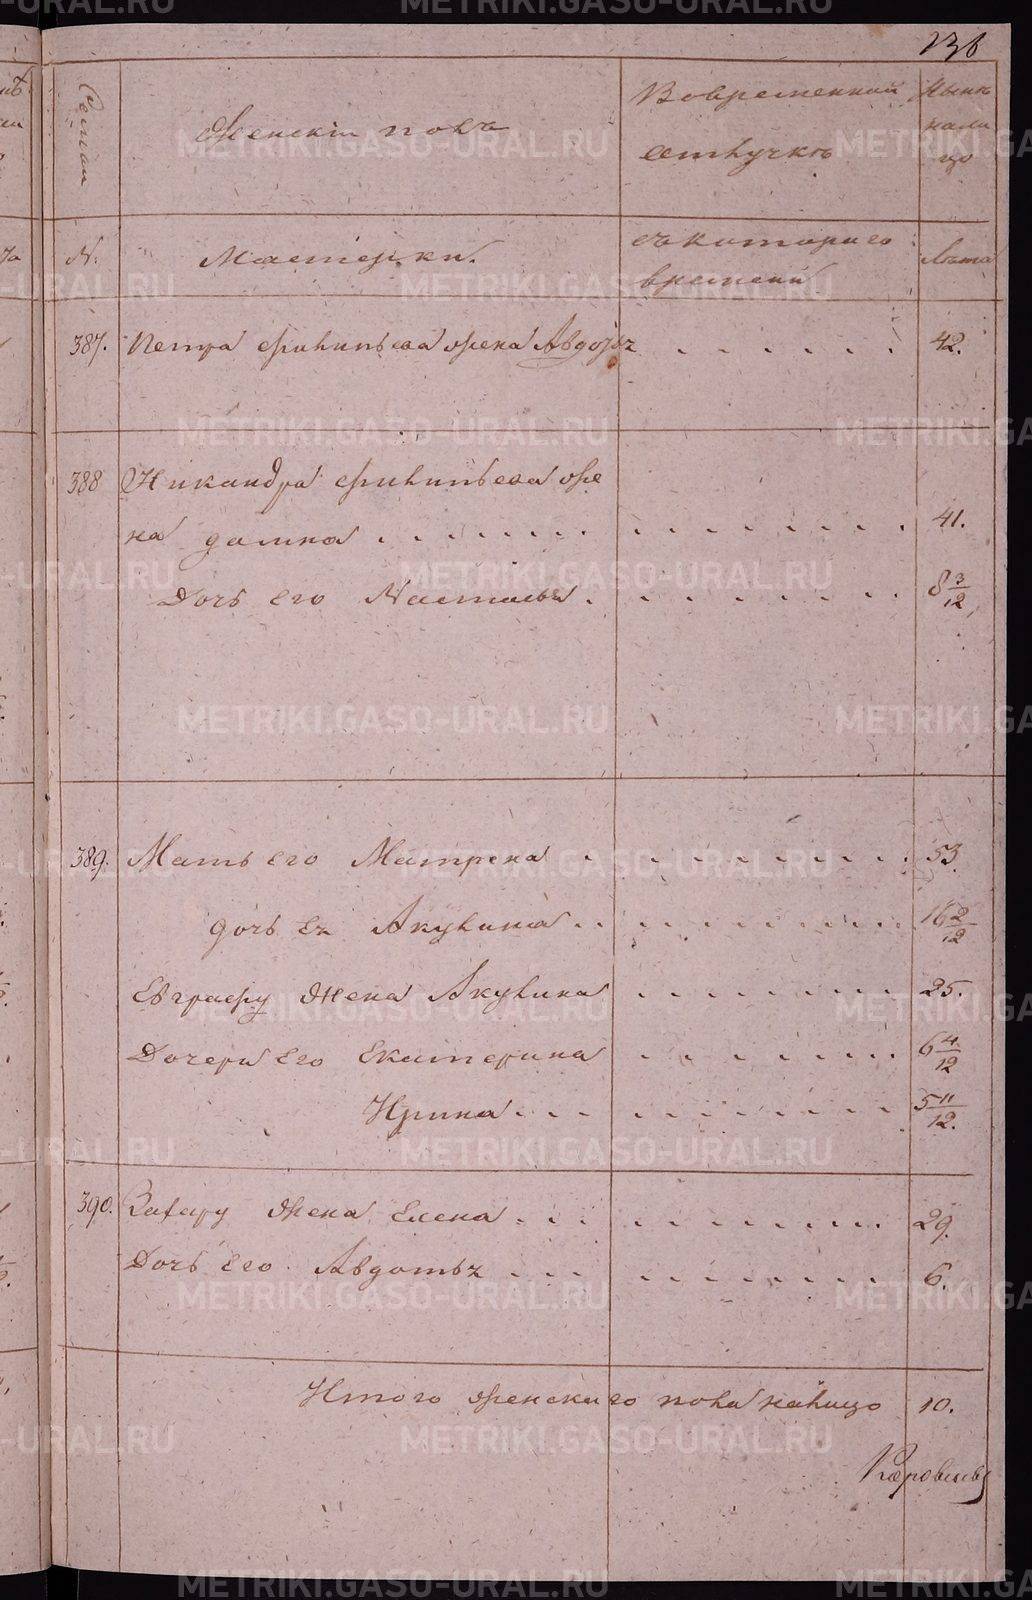 136
Семьи
Женскій полъ
Во временной
отлучкѣ
Нынѣ
нали
цо
№.
Мастерки.
съ котораго
времени
Лѣта
387. Петра Филипьева жена Авдотья . . . . . . . 42.
388 Никандра Филипьева же
на Домна . . . . . . . . . . . . . . . 41.
Дочь его Насталья . . . . . . . . 8 3/12
389. Мать его Матрена . . . . . . . . . . 53.
дочь ея Акулина . . . . . . . . . . . 16 2/12
Евграфу жена Акулина . . . . . . . . 25.
Дочери его Екатерина . . . . . . . 6 4/12
Ирина . . . . . . . . . . . 5 11/12.
390. Захару жена Елена . . . . . . . . . . . 29.
Дочь его Авдотья . . . . . . . . . . . 6.
Итого женскаго пола налицо 10.
METRIKI.GASO-URAL.RU